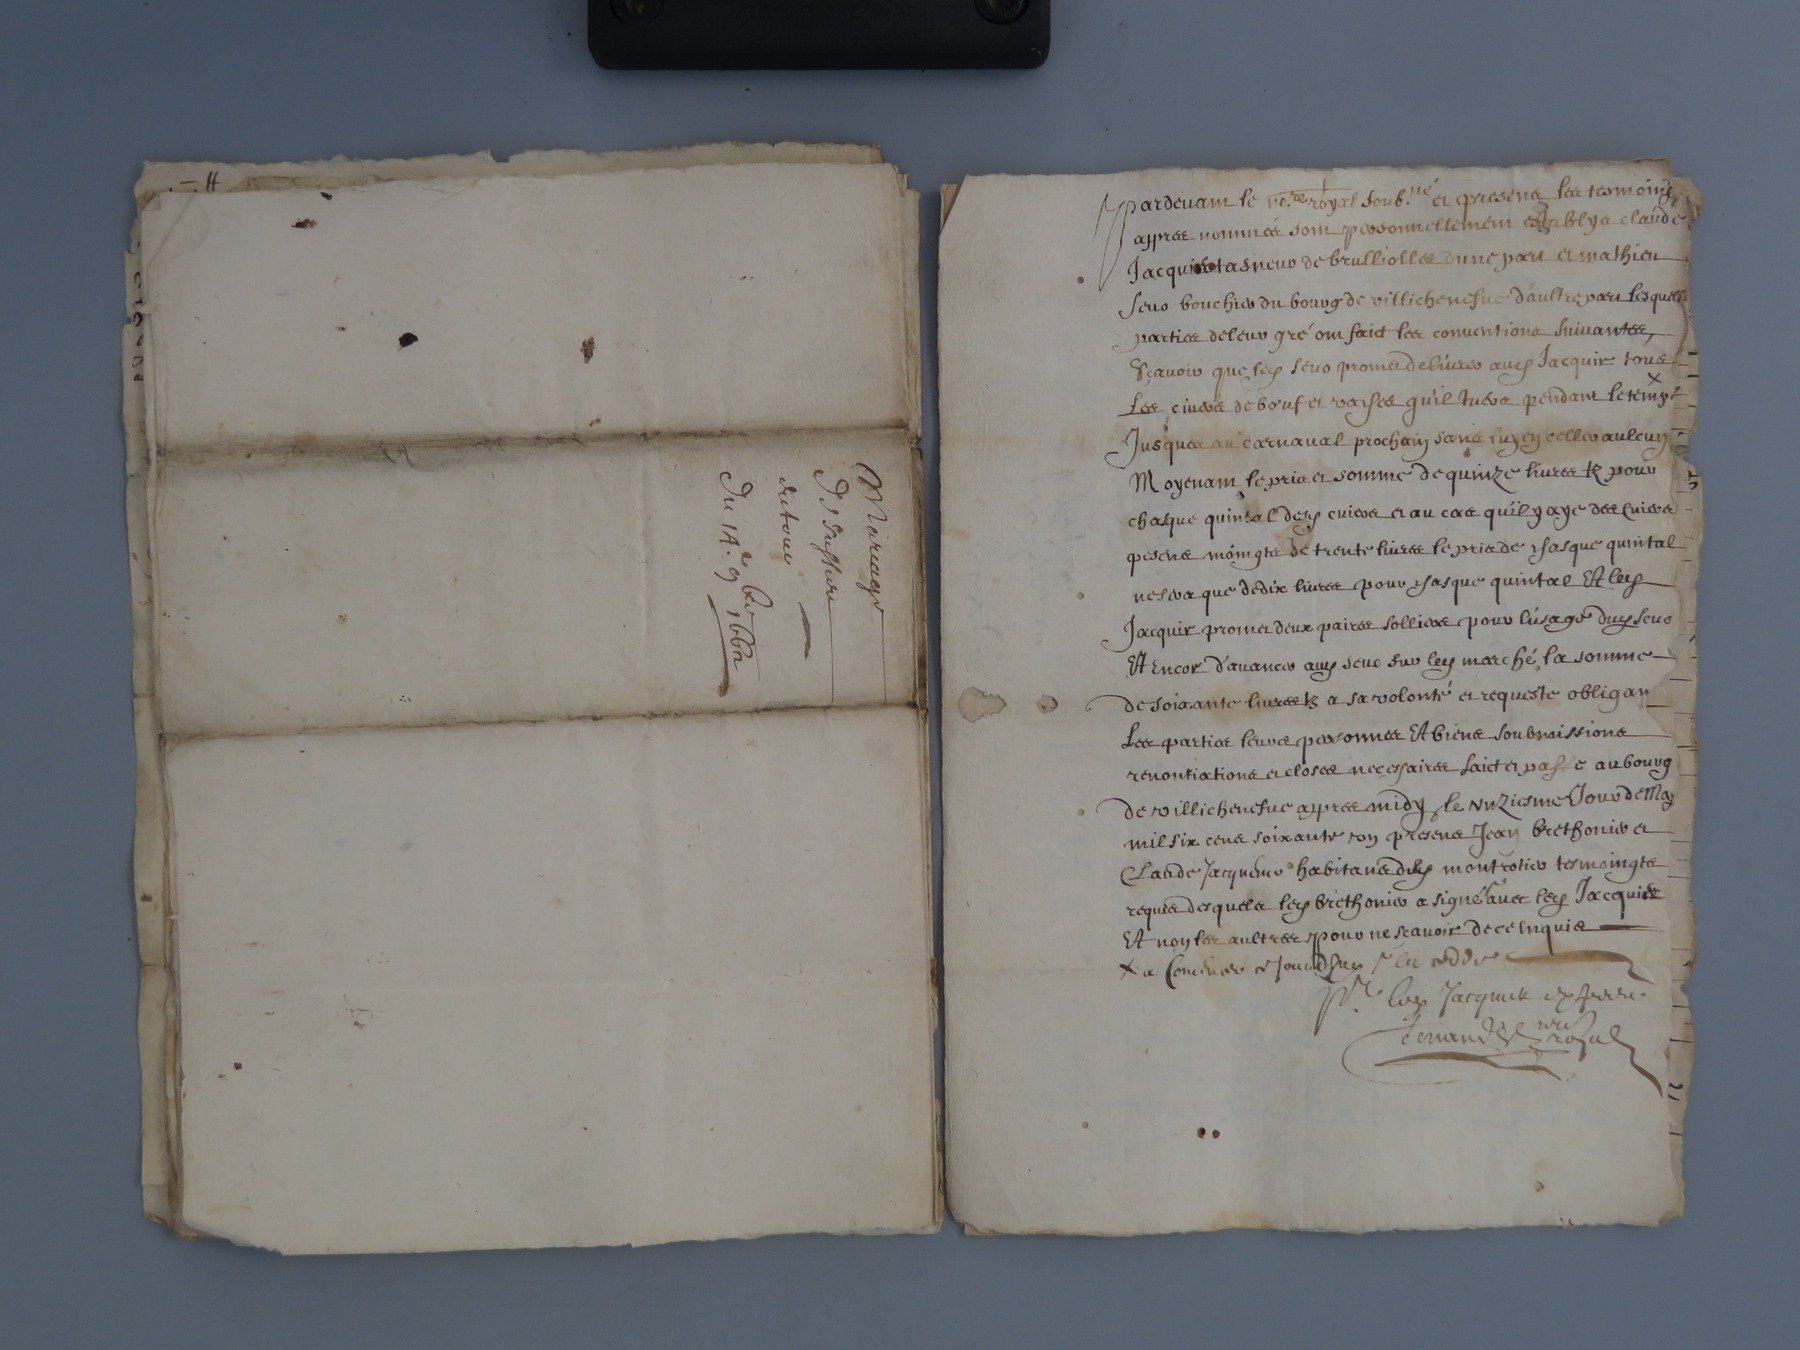 Mariage
du 14.e 9bre 1662
pardevant le no.re royal soub.né et presens les tesmoings
appres nommés sont personnellement establys claude
Jacquir tasneur de brulliolles dune part et mathieu
seno bouchier du bourg de villichenesve d'aultre part lesquelles
parties de leur gré ont faict les conventions suivantes,
Sçavoir que led seno promet delivrer aud Jacquir tous
Les cuiers de bœuf et vaches qu'il tuera pendant le temps x
Jusques au carnaval prochain sans
Moyenant le prix et somme de quinze livres tz pour
chasque quintal desd cuiers et au cas qu'il y aye des cuiers
pesens moingts de trente livres le prix de chasque quintal
ne sera que de dix livres pour chasque quintal Et led
Jacquir promet deux paires solliers pour l'usage dud seno
Et Encor d'avancer aud seno sur led marché la somme
de soixante livres tz a sa volonté et requeste obligan
Les parties leurs personnes Et biens soubmissions
renontiations et closes necessaires faict et passé au bourg
de villichenesve appres midy le unziesme Jour de May
mil six cens soixante un presens Jean brethonier et
Claude Jacquemo habitans dud montrotier tesmoingts
requis desquels led brethonier a signé avec led Jacquir
Et non les aultres pour ne scavoir de ce enquis
x a Comencer ce Jourdhuy
p.r led Jacquir
no.re royal